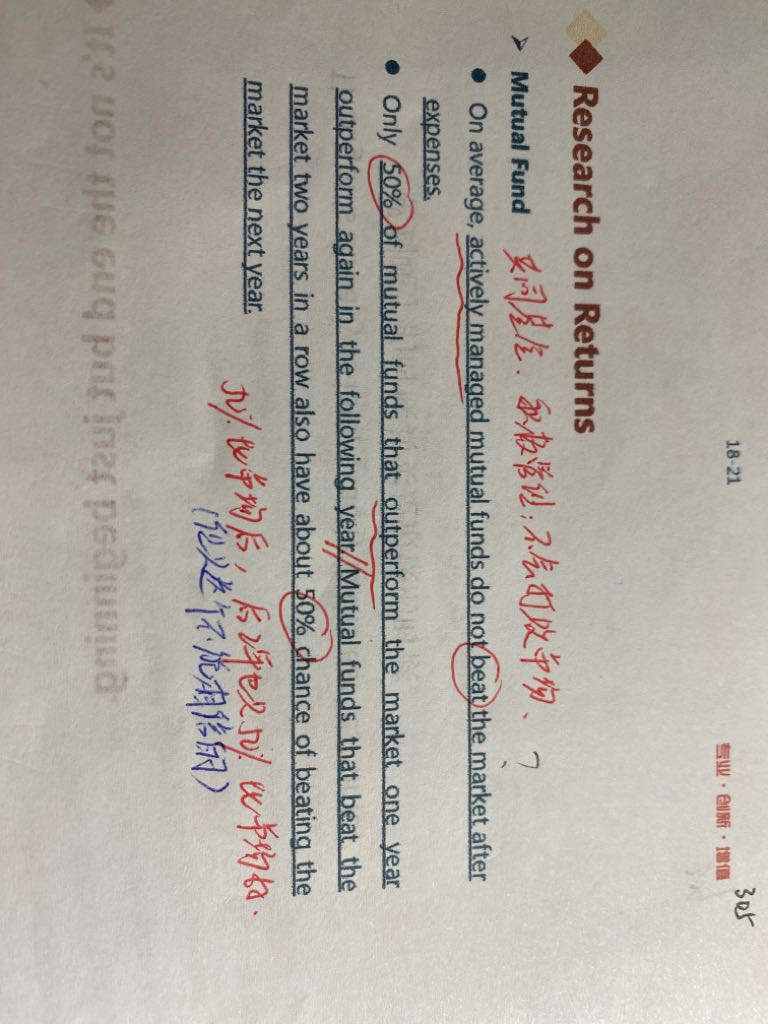 18-21
专业·创新·增值
305
Research on Returns
➢ Mutual Fund
共同基金、积极管理:不会打败市场、
?
• On average, actively managed mutual funds do not beat the market after
expenses.
• Only 50% of mutual funds that outperform the market one year
outperform again in the following year.//Mutual funds that beat the
market two years in a row also have about 50% chance of beating the
market the next year.
50%比市场后, 后2年也只50%比市场好、